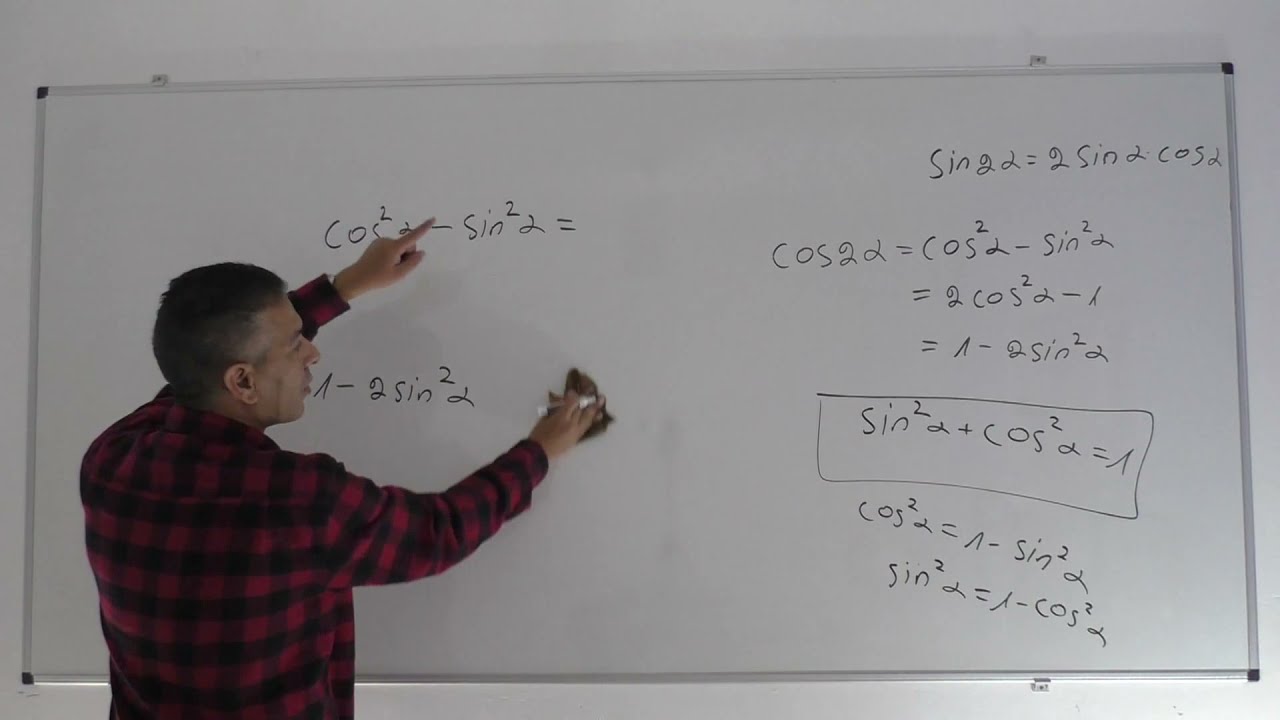 cos²α - sin²α =
1 - 2sin²α
sin2α = 2sinα·cosα
cos2α = cos²α - sin²α
= 2cos²α - 1
= 1 - 2sin²α
sin²α + cos²α = 1
cos²α = 1 - sin²α
sin²α = 1 - cos²α